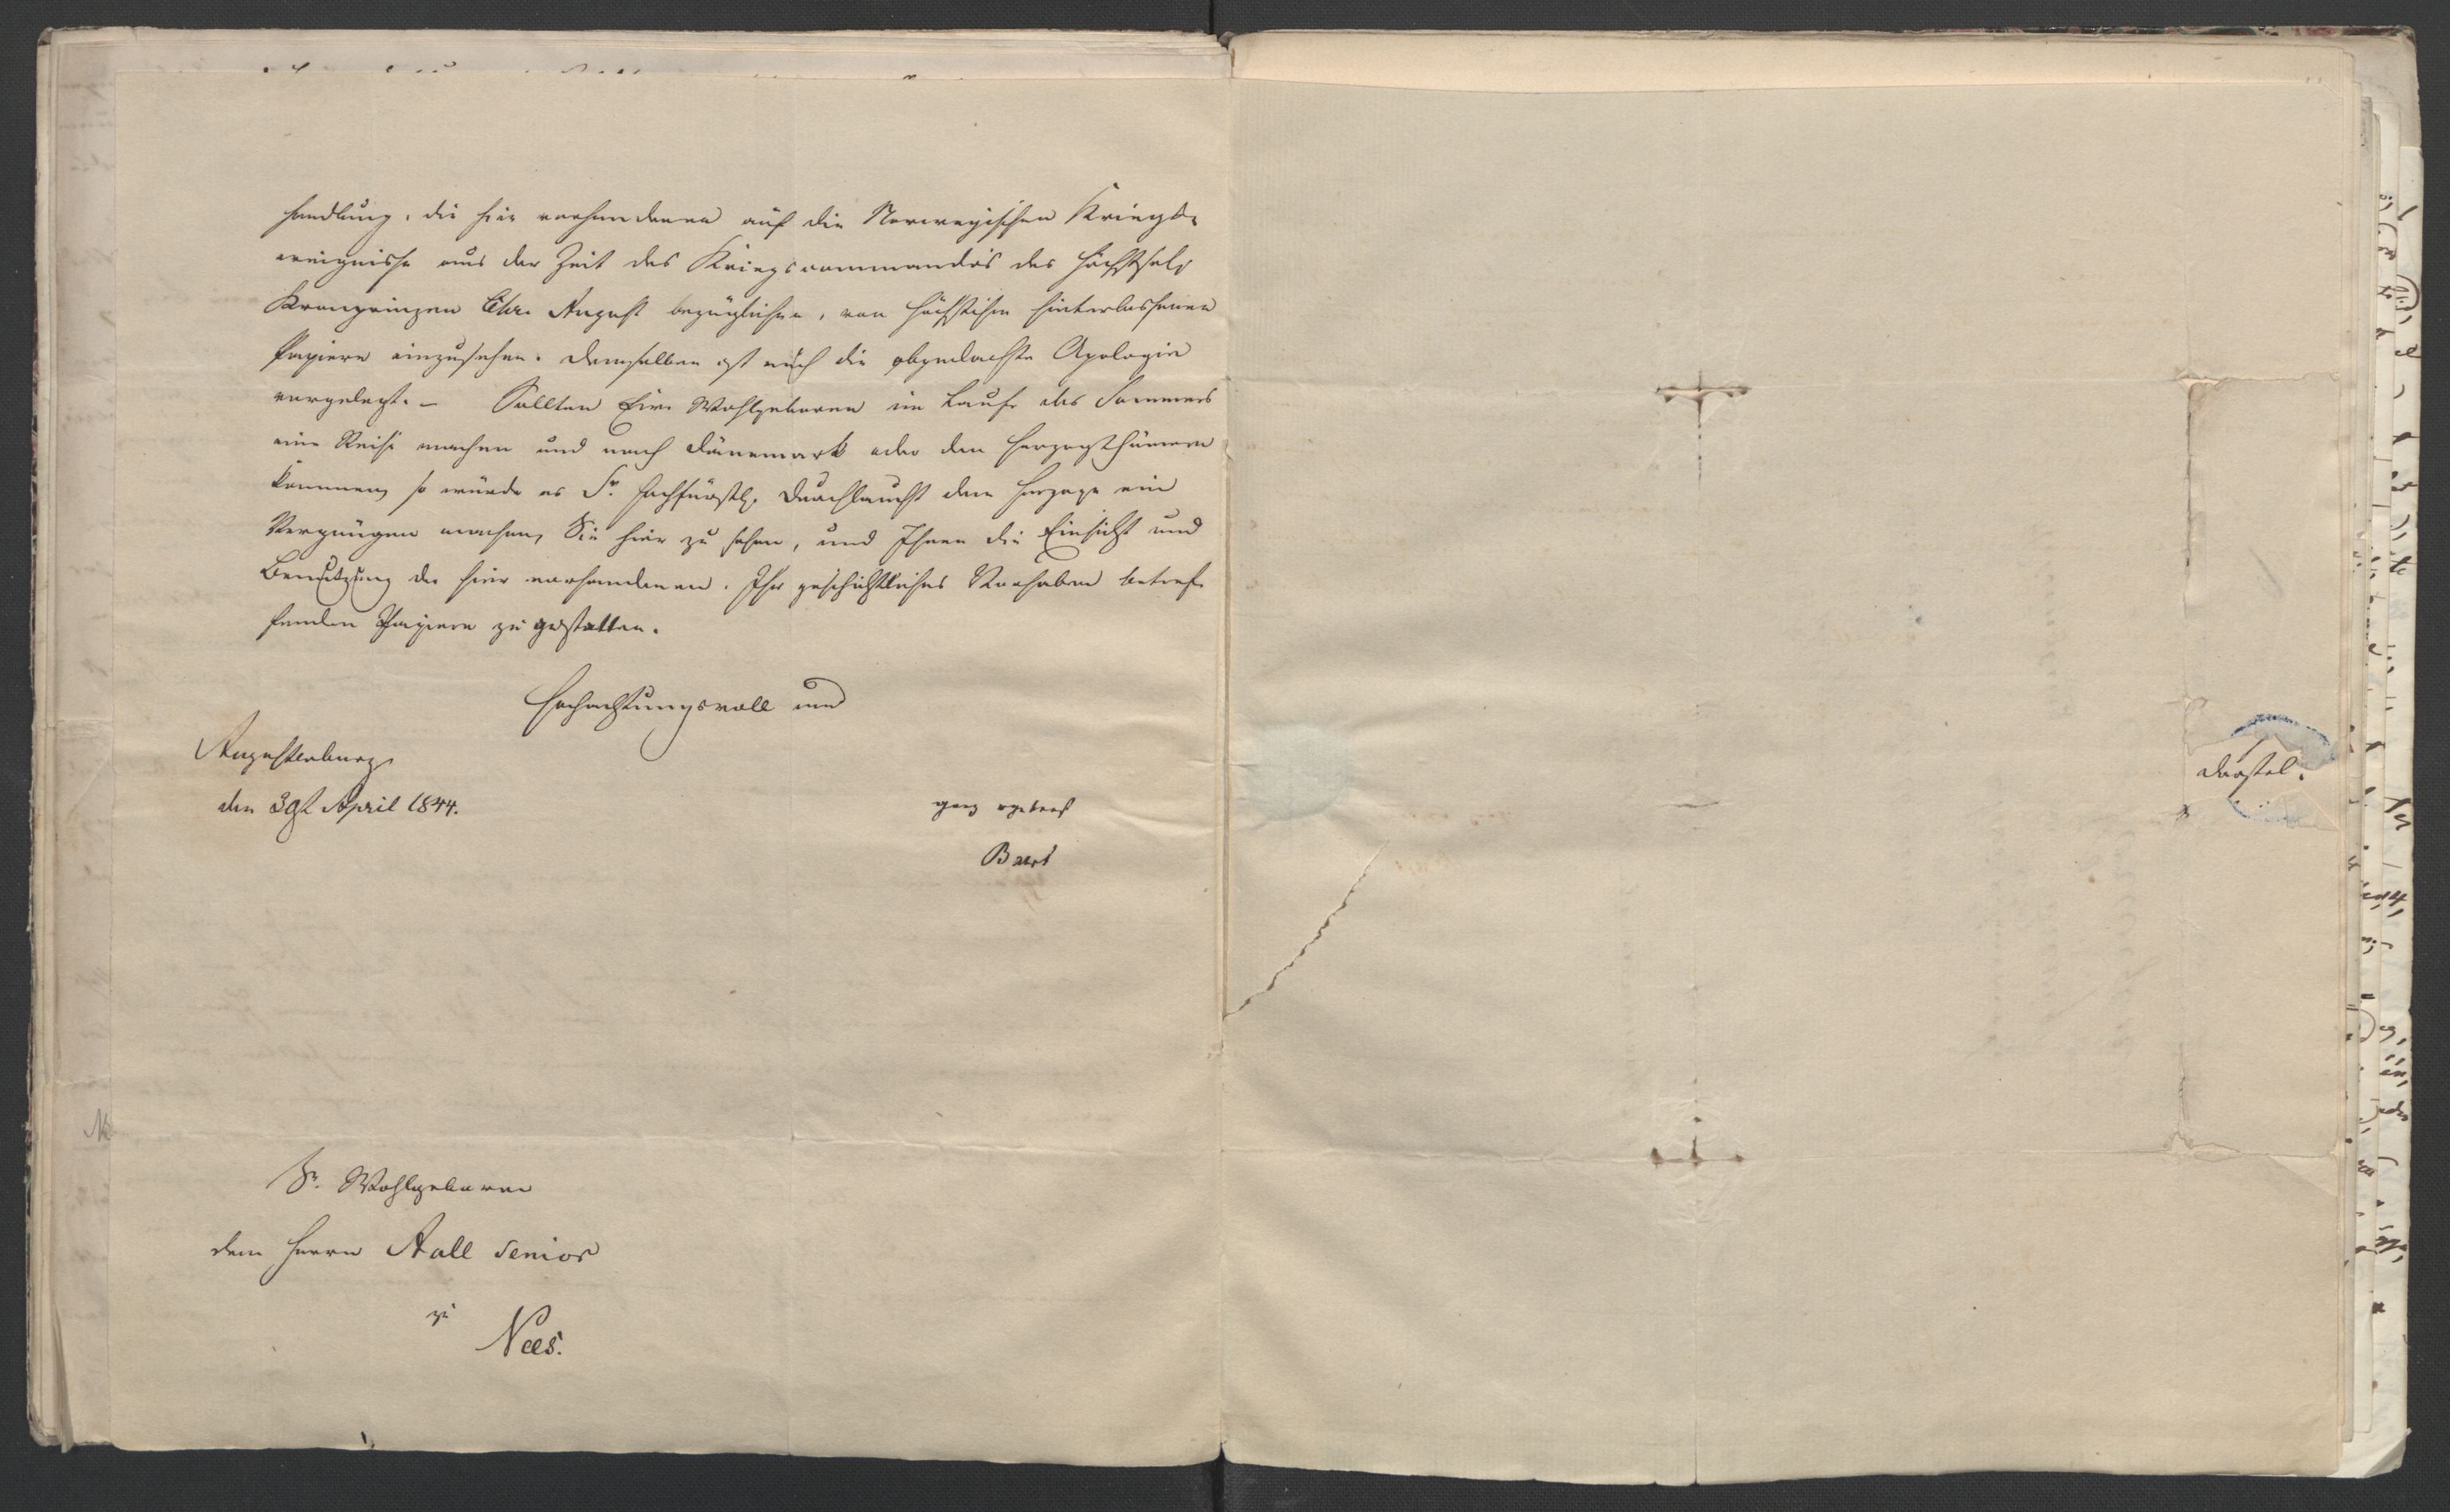 handlung, die hier vorhandenen auf die Norwegischen Kriegser-
eignisse aus der Zeit des Kriegscommandos des Höchstsel.
Kronprinzen Chr. August bezüglichen, von Höchstihm hinterlassenen
Papiere einzusehen. Demselben ist auch die obgedachte Apologie
vorgelegt. – Sollten Ew. Wohlgeboren im Laufe des Sommers
eine Reise machen und nach Dänemark oder den Herzogthümern
kommen, so würde es Sr. Hochfürstl. Durchlaucht dem Herzoge ein
Vergnügen machen, Sie hier zu sehen, und Ihnen die Einsicht und
Benutzung der hier vorhandenen, Ihr geschichtliches Vorhaben betref-
fenden Papiere zu gestatten.
Hochachtungsvoll und
Augustenburg
den 30st April 1844.
ganz ergebenst
Sr. Wohlgeboren
dem Herrn Aall Senior
zu
Nees.
darstel.